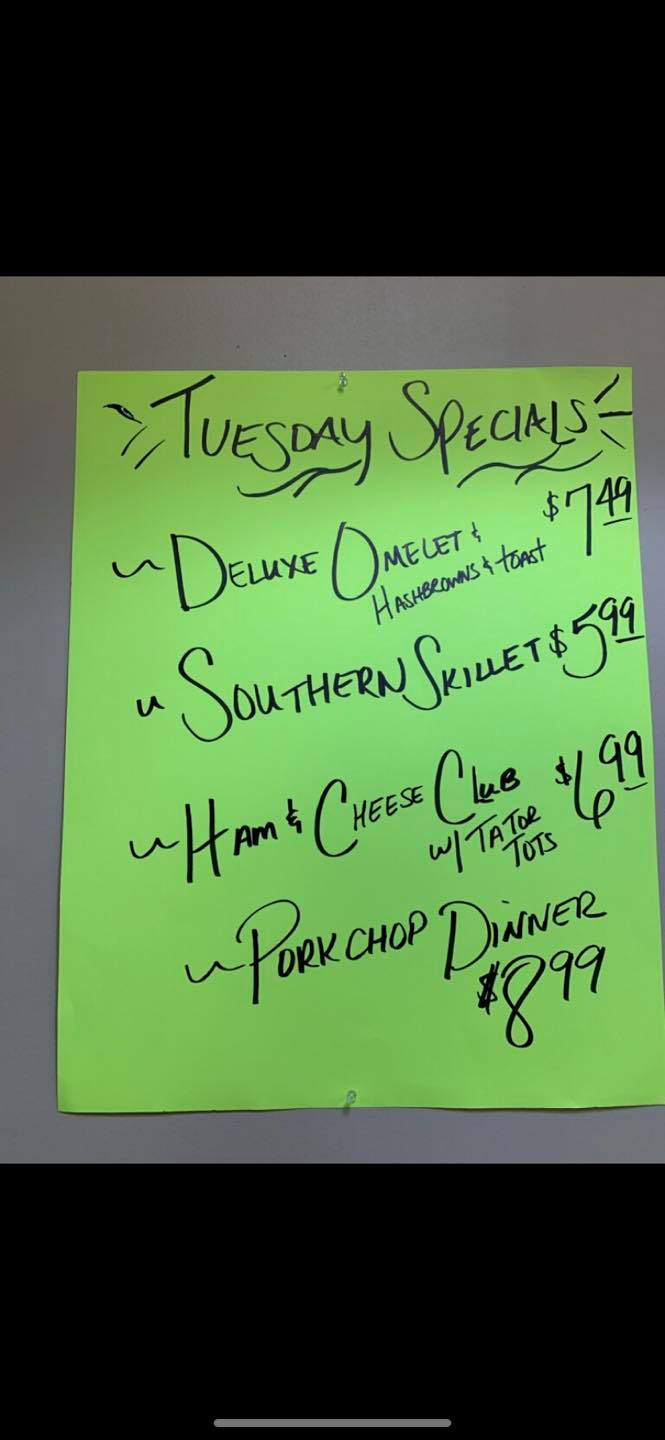 TUESDAY SPECIALS
~ DELUXE OMELET & $7.49
HASHBROWNS & TOAST
~ SOUTHERN SKILLET $5.99
~ HAM & CHEESE CLUB $6.99
W/ TATOR
TOTS
~ PORKCHOP DINNER
$8.99